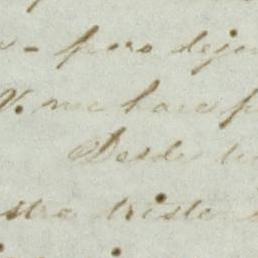 pero deja
V. me hace p
Desde
stra triste